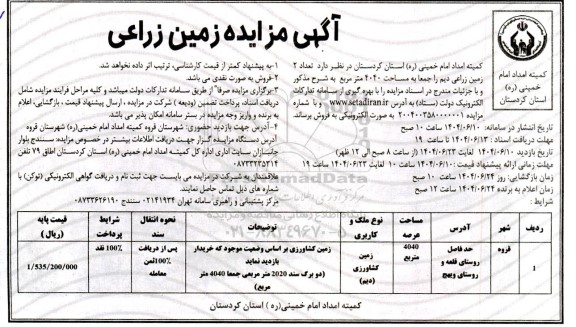 آگهی مزایده زمین زراعی
کمیته امداد امام خمینی (ره)
استان کردستان
کمیته امداد امام خمینی (ره) استان کردستان در نظر دارد تعداد ۲
زمین زراعی دیم را جمعا به مساحت ۴۰۴۰ متر مربع به شرح مذکور
و با جزئیات مندرج در اسناد مزایده را با بهره گیری از سامانه تدارکات
الکترونیک دولت (ستاد) به آدرس www.setadiran.ir و با شماره
مزایده به صورت الکترونیکی به فروش برساند.
تاریخ انتشار در سامانه: ۱۴۰۴/۰۶/۱۰ ساعت ۱۰ صبح
مهلت دریافت اسناد: ۱۴۰۴/۰۶/۱۳ تا ساعت ۱۹
تاریخ بازدید ۱۴۰۴/۰۶/۱۰ لغایت ۱۴۰۴/۰۶/۲۳ (از ساعت ۸ صبح الی ۱۲ ظهر)
مهلت زمانی ارائه پیشنهاد قیمت: ۱۴۰۴/۰۶/۱۰ ساعت ۱۰ لغایت ۱۴۰۴/۰۶/۲۳ ساعت ۱۹
زمان بازگشایی: روز ۱۴۰۴/۰۶/۲۴ ساعت ۱۰ صبح
زمان اعلام به برنده ۱۴۰۴/۰۶/۲۴ ساعت ۱۲ صبح
شرایط:
۱-به پیشنهاد کمتر از قیمت کارشناسی، ترتیب اثر داده نخواهد شد.
۲-فروش به صورت نقدی می باشد.
۳-برگزاری مزایده صرفاً از طریق سامانه تدارکات دولت میباشد و کلیه مراحل فرایند مزایده شامل
دریافت اسناد، پرداخت تضمین (ودیعه) شرکت در مزایده، ارسال پیشنهاد قیمت، بازگشایی، اعلام
به برنده و واریز وجه مزایده در بستر سامانه امکان پذیر می باشد.
۴- آدرس جهت بازدید حضوری: شهرستان قروه کمیته امداد امام خمینی(ره) شهرستان قروه
آدرس دستگاه مزایـده گـزار جهـت دریافت اطلاعات بیشتر در خصوص مزایده: سنندج بلوار
جانبازان سـایت اداری اداره کل کمیتـه امـداد امام خمینی (ره) استان کردستان اطاق ۷۹ تلفن
علاقمندان به شرکت در مزایده می بایست جهت ثبت نام و دریافت گواهی الکترونیکی (توکن) با
شماره های ذیل تماس حاصل نمایند.
مرکز پشتیبانی و راهبری سامانه تهران ۰۲۱۴۱۹۳۴ سنندج ۰۸۷۳۳۶۴۶۱۹۰
ردیف شهر آدرس مساحت عرصه نوع ملک و کاربری توضیحات نحوه انتقال سند شرایط پرداخت قیمت پایه (ریال)
1 قروه حد فاصل روستای قلعه و روستای ویهج 4040 متربع زمین کشاورزی (دیم) زمین کشاورزی بر اساس وضعیت موجود که خریدار بازدید نماید (دو برگ سند 2020 متر مربعی جمعا 4040 متر مربع) پس از دریافت 100%ثمن معامله 100% نقد 1/535/200/000
کمیته امداد امام خمینی(ره) استان کردستان